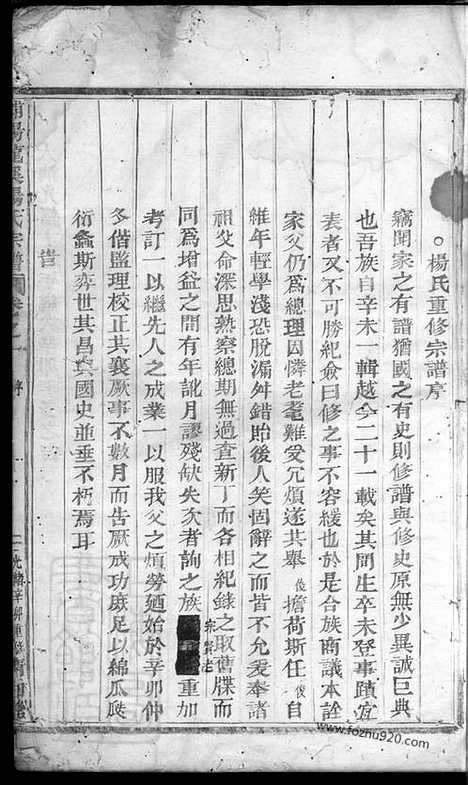 ○楊氏重修宗譜序
竊聞家之有譜猶國之有史則修譜與修史原無少異誠巨典
也吾族自辛未一輯越今二十一載矣其間生卒未登事蹟宜
表者又不可勝紀僉曰修之事不容緩也於是合族商議本詮
家父仍爲總理因憐老耄難受冗煩遂共舉俊擔荷斯任俊自
維年輕學淺恐脫漏舛錯貽後人笑固辭之而皆不允爰奉諸
祖父命深思熟察總期無過查新丁而各相紀錄之取舊牒而
同爲增益之間有年訛月謬殘缺失次者詢之族宗賢老重加
考訂一以繼先人之成業一以服我父之煩勞廼始於辛卯仲
冬偕監理校正共襄厥事不數月而告厥成功庶足以綿瓜瓞
衍螽斯奕世其昌與國史並垂不朽焉耳
浦陽龍溪楊氏宗譜 卷之一 序 二 光緒辛卯重修
www.fozhu920.com